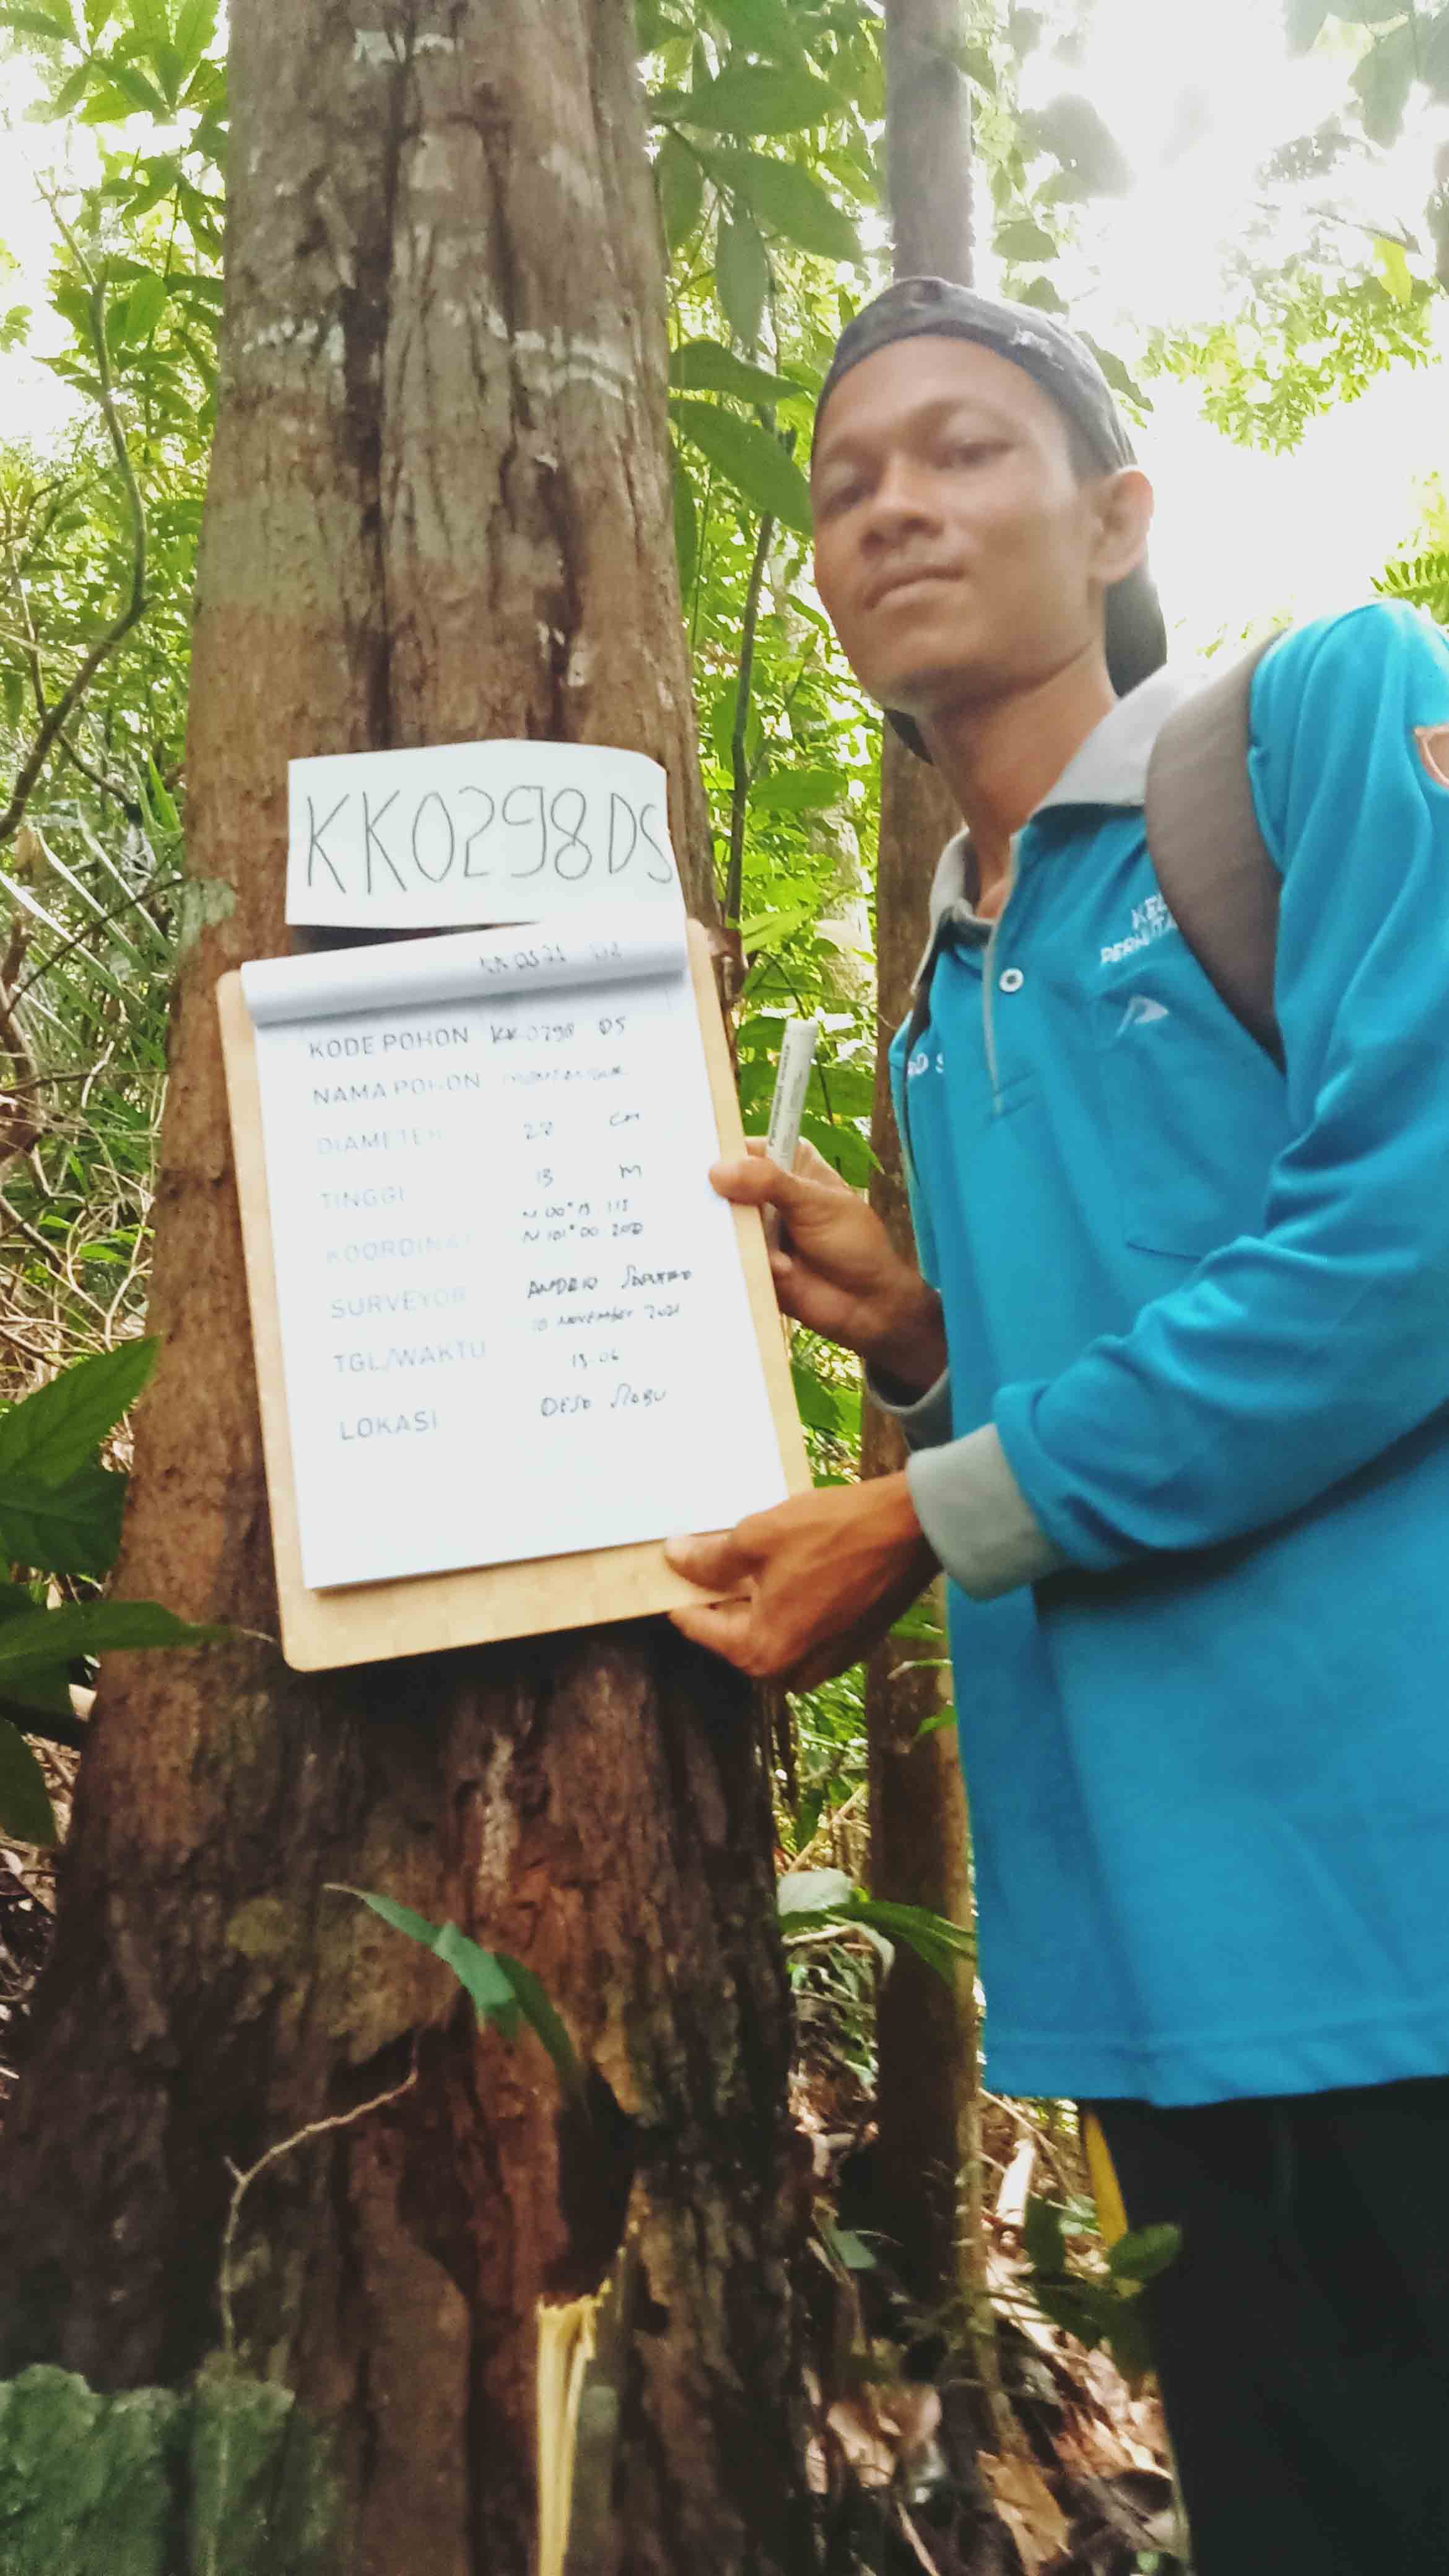 KK0298DS
KK 0571
KODE POHON KK 0298 DS
NAMA POHON
DIAMETER 22 CM
TINGGI 13 M
KOORDINAT N 00° 13 115
N 101° 00 200
SURVEYOR ANDRIO SAPUTRO
TGL/WAKTU 10 NOVEMBER 2021
13-06
LOKASI DESO SIABU